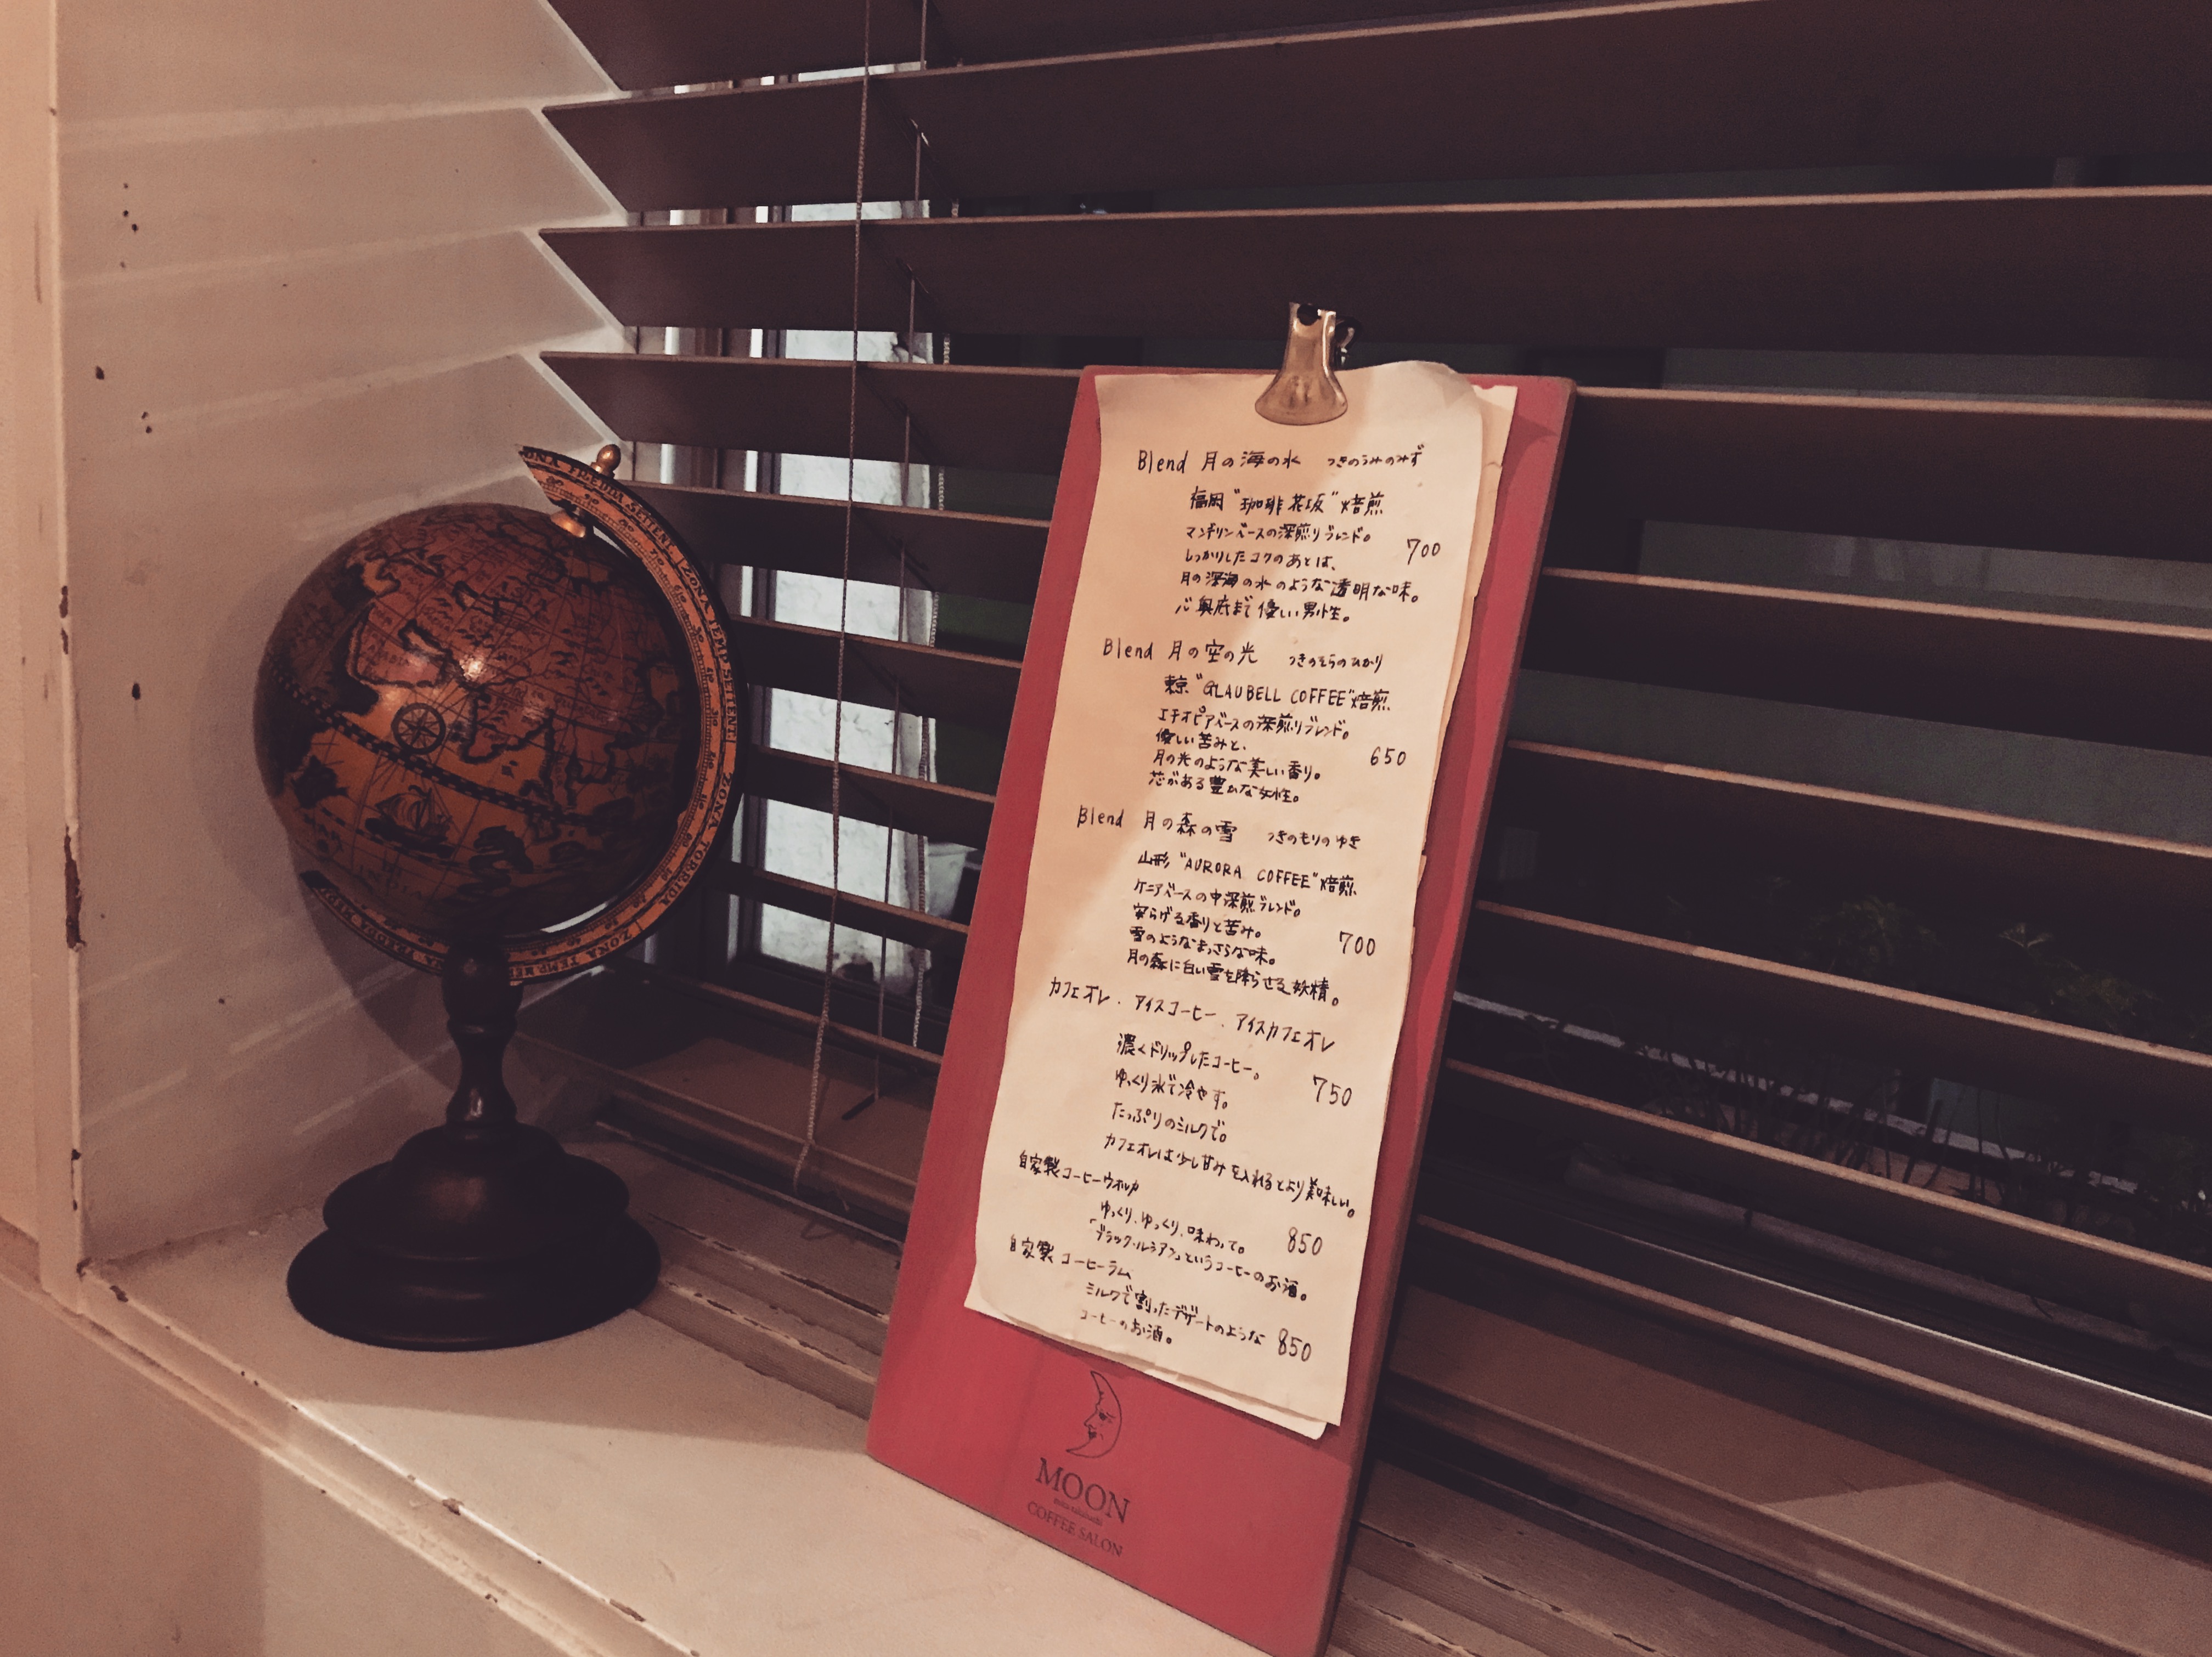 Blend 月の海の水 つきのうみのみず
福岡"珈琲花坂"焙煎
マンデリンベースの深煎りブレンド。
しっかりしたコクのあとは、
700
月の深海の水のような透明な味。
心奥底まで優しい男性。
Blend 月の空の光 つきのそらのひかり
東京"GLAUBELL COFFEE"焙煎
エチオピアベースの深煎りブレンド。
優しい苦みと、
月の光のような美しい香り。
650
芯がある豊かな女性。
Blend 月の森の雪 つきのもりのゆき
山形"AURORA COFFEE"焙煎
ケニアベースの中深煎ブレンド。
安らげる香りと苦み。
雪のようなまっさらな味。
700
月の森に白い雪を降らせる妖精。
カフェオレ、アイスコーヒー、アイスカフェオレ
濃くドリップしたコーヒー。
ゆっくり氷で冷やす。
750
たっぷりのミルクで。
カフェオレは少し甘みを入れるとより美味しい。
自家製コーヒーウォッカ
ゆっくり、ゆっくり、味わって。
850
「ブラックルシアン」というコーヒーのお酒。
自家製コーヒーラム
ミルクで割ったデザートのような
コーヒーのお酒。
850
MOON
COFFEE SALON
ZONA TEMP SETENT.
ZONA TORRIDA
ZONA TEMP MER
INDIA